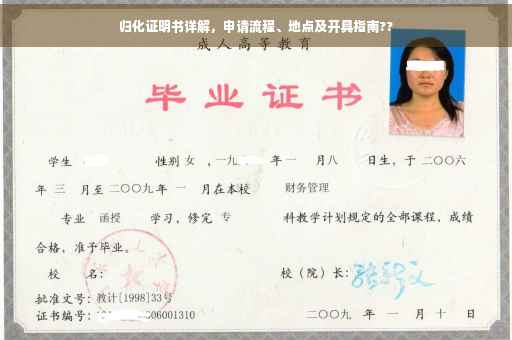 归化证明书详解，申请流程、地点及开具指南??
成人高等教育
毕业证书
学生 性别 女 ，一九 年一 月八 日生，于二〇〇六
年 三 月至二〇〇九年 一 月在本校 财务管理
专业 函授 学习，修完 专 科教学计划规定的全部课程，成绩
合格，准予毕业。
校 名： 校（院）长：
批准文号：教计[1998]33号
证书编号： 006001310 二〇〇九 年 一 月 十 日